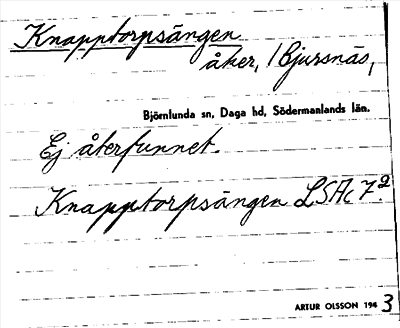 Knapptorpsängen
åker, / Bjursnäs,
Björnlunda sn, Daga hd, Södermanlands län.
Ej återfunnet.
Knapptorpsängen LSAc 7:2
ARTUR OLSSON 1943